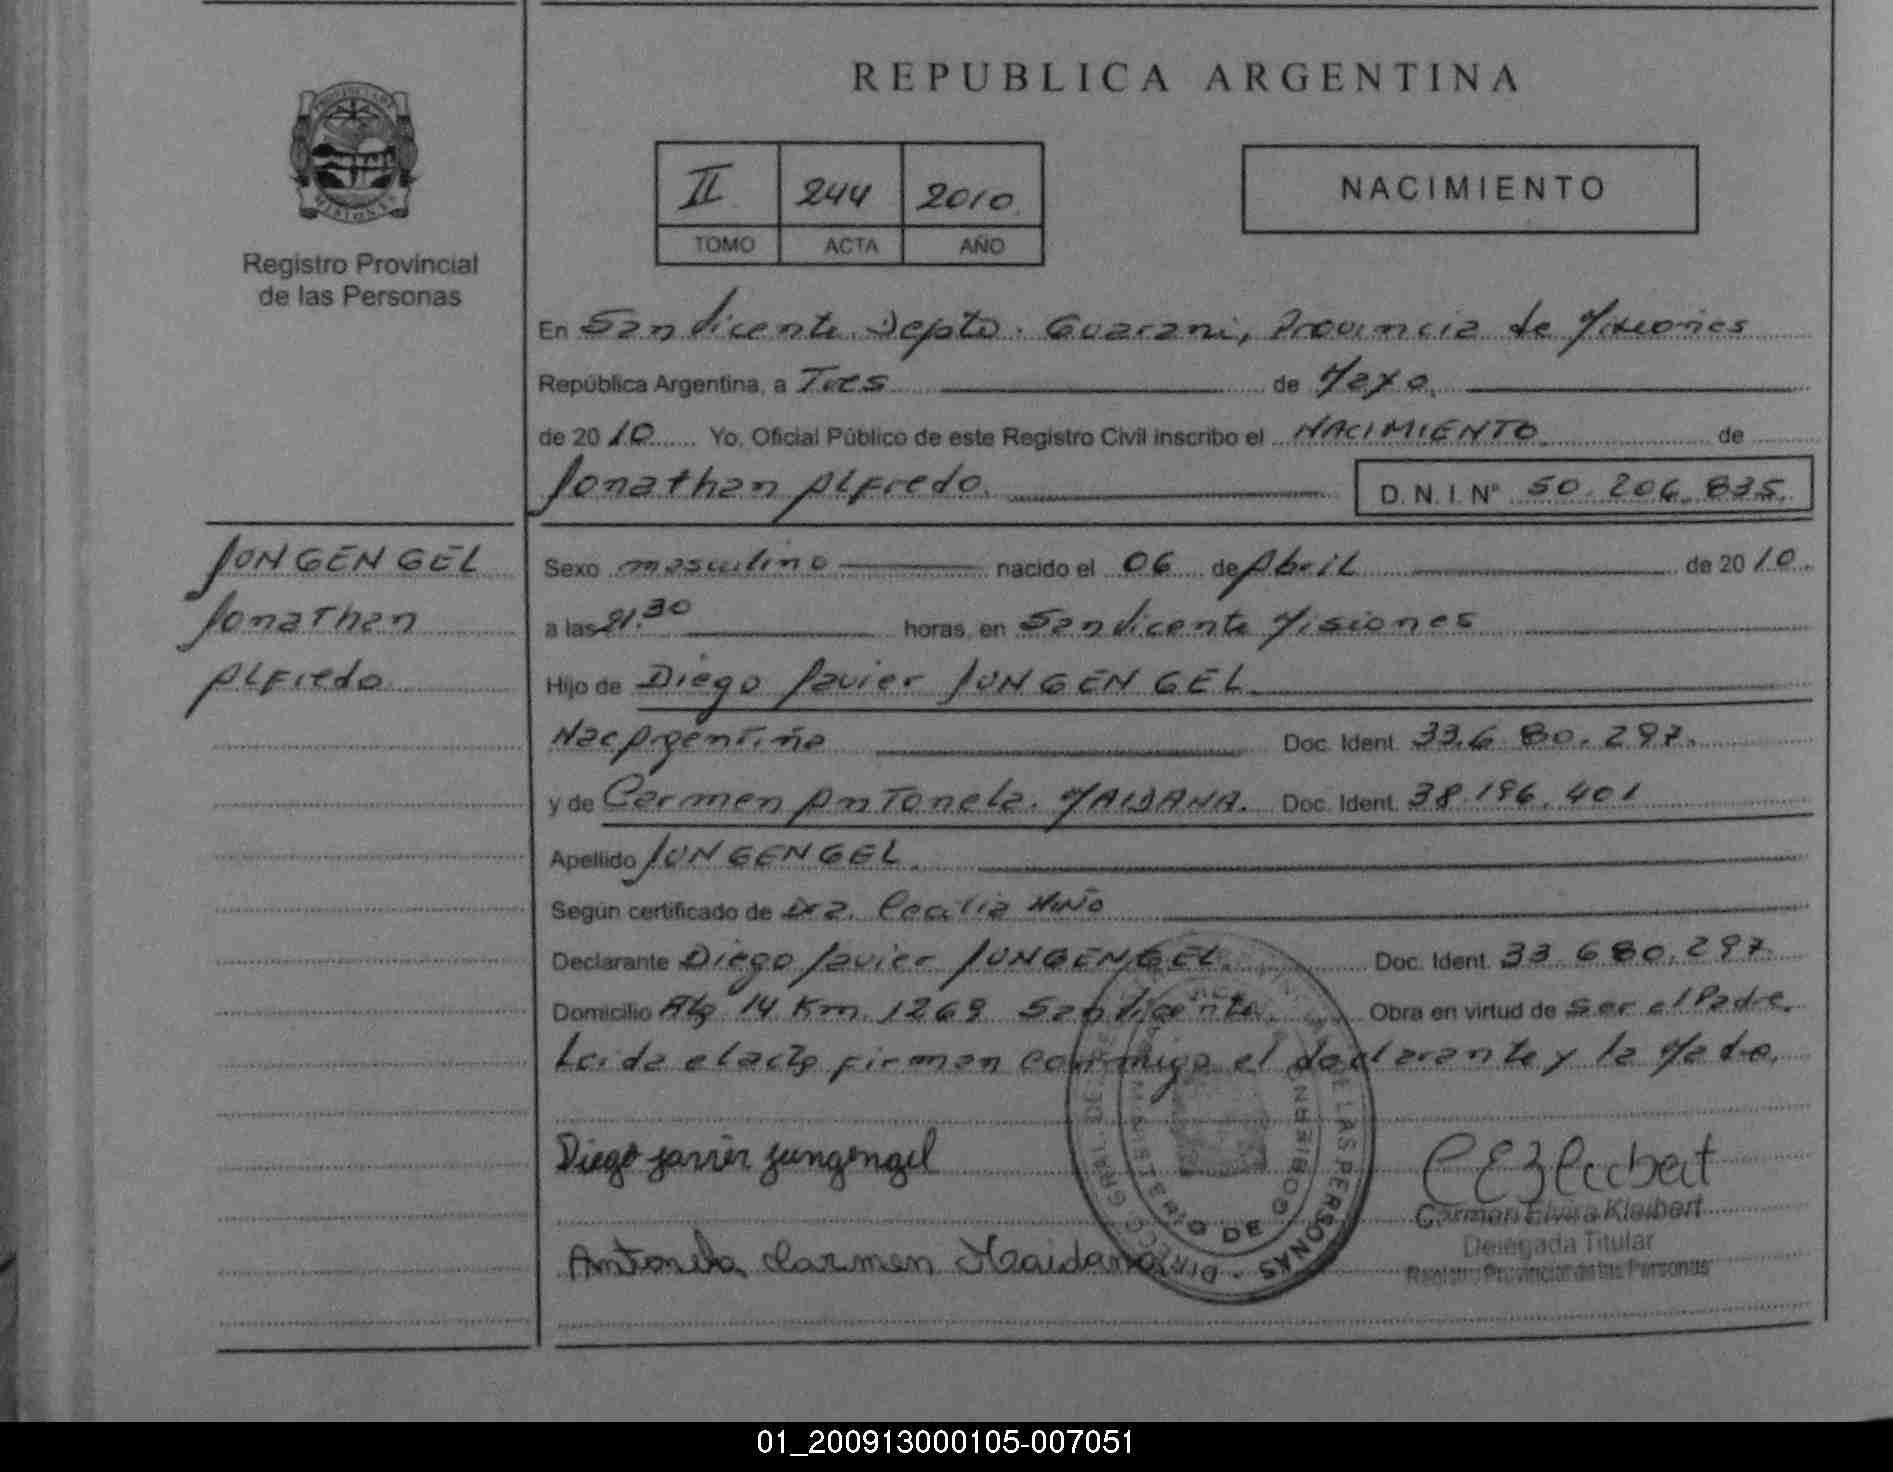 REPUBLICA ARGENTINA
II 244 2010
TOMO ACTA AÑO
NACIMIENTO
Registro Provincial
de las Personas
En San Vicente Depto. Guarani, Provincia de Misiones
República Argentina, a Tres de Mayo
de 2010 Yo, Oficial Público de este Registro Civil inscribo el NACIMIENTO de
Jonathan Alfredo. D. N. I. N° 50.206.835.
JUNGENGEL
Jonathan
Alfredo
Sexo masculino nacido el 06 de Abril de 2010.
a las 21.30 horas, en San Vicente Misiones
Hijo de Diego Javier JUNGENGEL
Nac Argentina Doc. Ident. 33.680.297.
y de Carmen Antonela MAIDANA. Doc. Ident. 38.196.401
Apellido JUNGENGEL
Según certificado de Dra. Cecilia Niño
Declarante Diego Javier JUNGENGEL Doc. Ident. 33.680.297.
Domicilio Alg 14 Km 1269 San Vicente. Obra en virtud de ser el Padre.
Leida el acta firman conmigo el declarante y la Madre.
Diego javier jungengel
Antonela Carmen Maidana
Carmen Elvira Kleibert
Delegada Titular
Registro Provincial de las Personas
DE LAS PERSONAS - DIRECC. GRAL. DE
MINISTERIO DE GOBIERNO
01_200913000105-007051